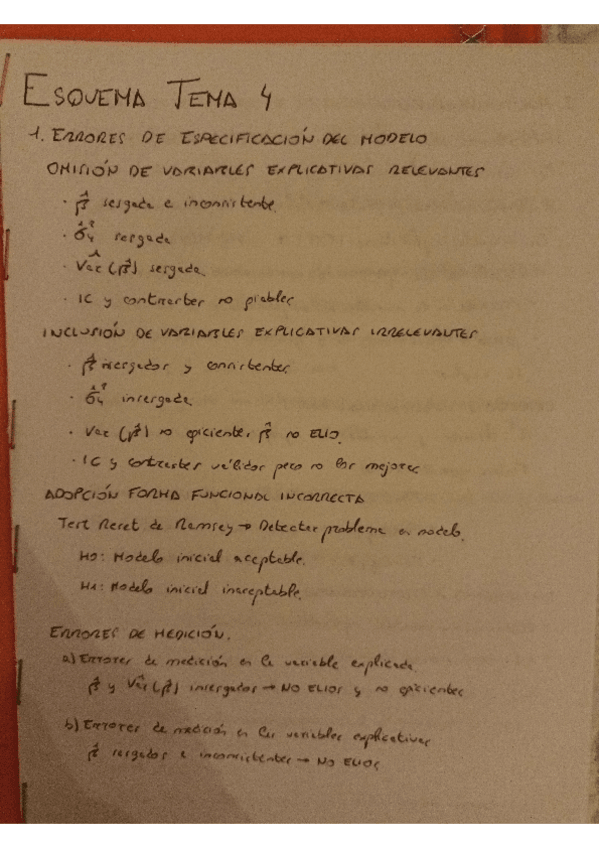 ESQUEMA TEMA 4
1. ERRORES DE ESPECIFICACIÓN DEL MODELO
OMISIÓN DE VARIABLES EXPLICATIVAS RELEVANTES
· β̂ sesgada e inconsistente.
· σ̂²ᵤ sesgada
· Var̂(β̂) sesgada.
· IC y contrastes no fiables
INCLUSIÓN DE VARIABLES EXPLICATIVAS IRRELEVANTES
· β̂ insesgados y consistentes.
· σ̂²ᵤ insesgada
· Var(β̂) no eficientes β̂ no ELIO.
· IC y contrastes válidos pero no los mejores
ADOPCIÓN FORMA FUNCIONAL INCORRECTA
Test Reset de Ramsey → Detectar problema en modelo.
H0: Modelo inicial aceptable.
H1: Modelo inicial inaceptable.
ERRORES DE MEDICIÓN.
a) Errores de medición en la variable explicada
β̂ y Var̂(β̂) insesgados → NO ELIOS y no eficientes
b) Errores de medición en las variables explicativas
β̂ sesgados e inconsistentes → NO ELIOS